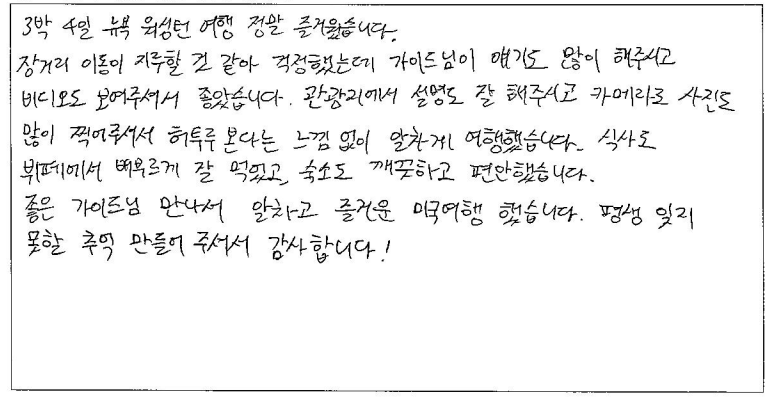 3박 4일 뉴욕 워싱턴 여행 정말 즐거웠습니다.
장거리 이동이 지루할 것 같아 걱정했는데 가이드님이 얘기도 많이 해주시고
비디오도 보여주셔서 좋았습니다. 관광지에서 설명도 잘 해주시고 카메라로 사진도
많이 찍어주셔서 허투루 본다는 느낌 없이 알차게 여행했습니다. 식사도
뷔페에서 배부르게 잘 먹었고, 숙소도 깨끗하고 편안했습니다.
좋은 가이드님 만나서 알차고 즐거운 미국여행 했습니다. 평생 잊지
못할 추억 만들어 주셔서 감사합니다!